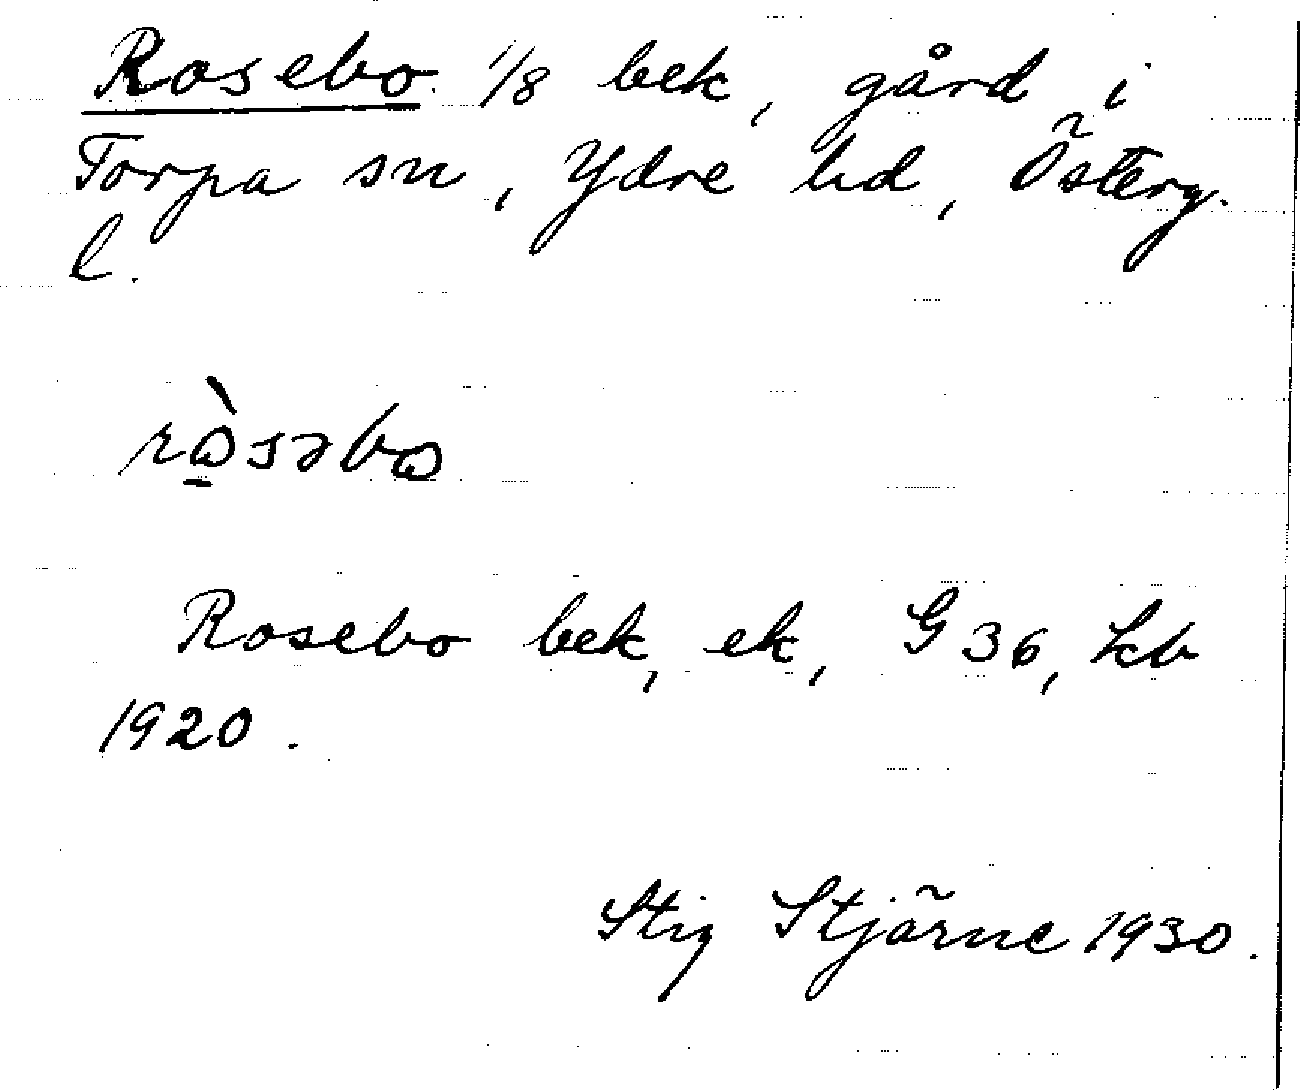 Rosebo 1/8 bek, gård i
Torpa sn, Ydre hd, Österg.
l.
ròsəbo
Rosebo bek, ek, G 36, kb
1920.
Stig Stjärne 1930.